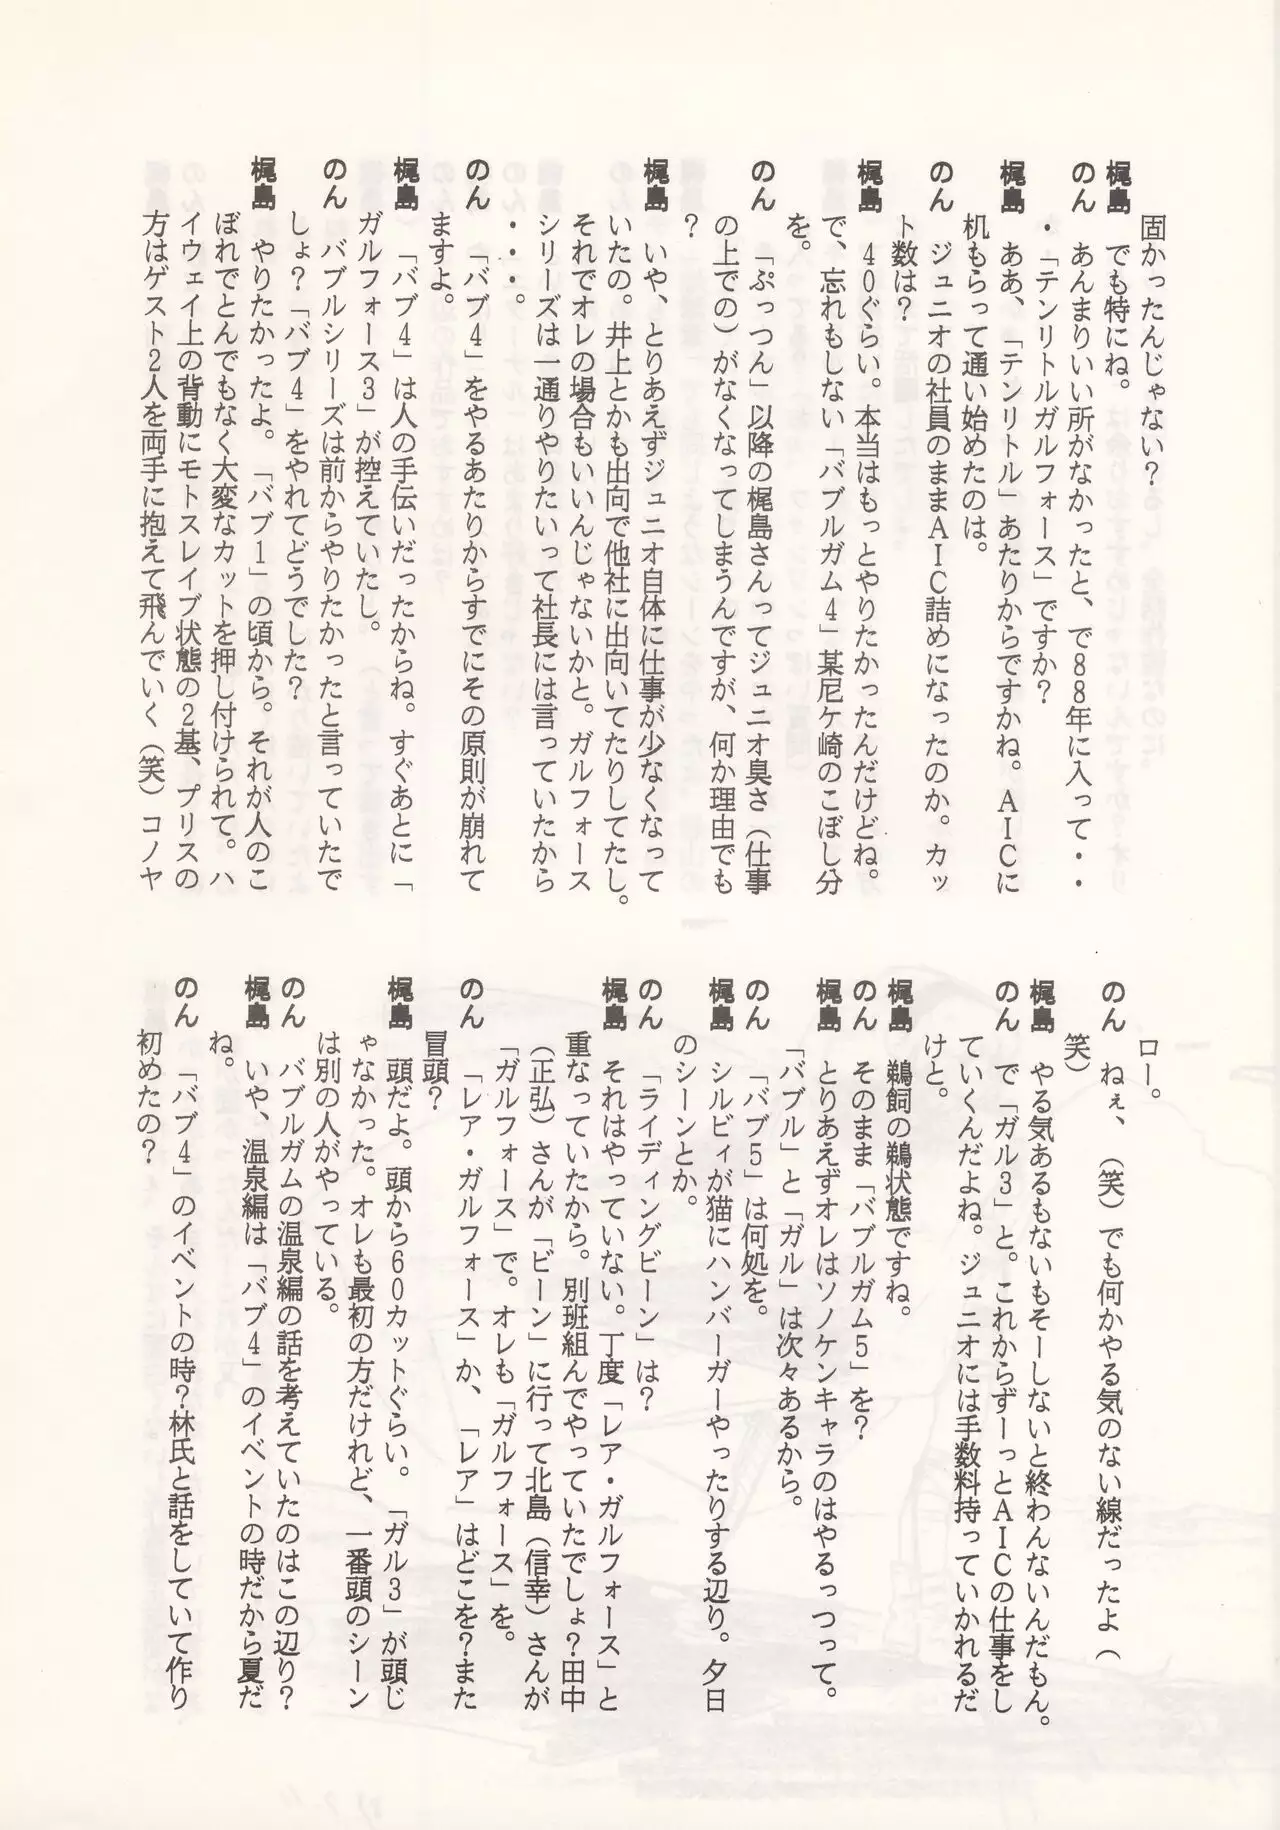 固かったんじゃない？
梶島　でも特にね。
のん　あんまりいい所がなかったと、で８８年に入って・・
・「テンリトルガルフォース」ですか？
梶島　ああ、「テンリトル」あたりからですかね。ＡＩＣに
机もらって通い始めたのは。
のん　ジュニオの社員のままＡＩＣ詰めになったのか。カッ
ト数は？
梶島　４０ぐらい。本当はもっとやりたかったんだけどね。
で、忘れもしない「バブルガム４」某尼ケ崎のこぼし分
を。
のん　「ぷっつん」以降の梶島さんってジュニオ臭さ（仕事
の上での）がなくなってしまうんですが、何か理由でも
？
梶島　いや、とりあえずジュニオ自体に仕事が少なくなって
いたの。井上とかも出向で他社に出向いてたりしてたし。
それでオレの場合もいいんじゃないかと。ガルフォース
シリーズは一通りやりたいって社長には言っていたから
・・・。
のん　「バブ４」をやるあたりからすでにその原則が崩れて
ますよ。
梶島　「バブ４」は人の手伝いだったからね。すぐあとに「
ガルフォース３」が控えていたし。
のん　バブルシリーズは前からやりたかったと言っていたで
しょ？「バブ４」をやれてどうでした？
梶島　やりたかったよ。「バブ１」の頃から。それが人のこ
ぼれでとんでもなく大変なカットを押し付けられて。ハ
イウェイ上の背動にモトスレイブ状態の２基、プリスの
方はゲスト２人を両手に抱えて飛んでいく（笑）コノヤ
ロー。
のん　ねぇ、（笑）でも何かやる気のない線だったよ（
笑）
梶島　やる気あるもないもそーしないと終わんないんだもん。
のん　で「ガル３」と。これからずーっとＡＩＣの仕事をし
ていくんだよね。ジュニオには手数料持っていかれるだ
けと。
梶島　鵜飼の鵜状態ですね。
のん　そのまま「バブルガム５」を？
梶島　とりあえずオレはソノケンキャラのはやるっつって。
「バブル」と「ガル」は次々あるから。
のん　「バブ５」は何処を。
梶島　シルビィが猫にハンバーガーやったりする辺り。夕日
のシーンとか。
のん　「ライディングビーン」は？
梶島　それはやっていない。丁度「レア・ガルフォース」と
重なっていたから。別班組んでやっていたでしょ？田中
（正弘）さんが「ビーン」に行って北島（信幸）さんが
「ガルフォース」で。オレも「ガルフォース」を。
のん　「レア・ガルフォース」か、「レア」はどこを？また
冒頭？
梶島　頭だよ。頭から６０カットぐらい。「ガル３」が頭じ
ゃなかった。オレも最初の方だけれど、一番頭のシーン
は別の人がやっている。
のん　バブルガムの温泉編の話を考えていたのはこの辺り？
梶島　いや、温泉編は「バブ４」のイベントの時だから夏だ
ね。
のん　「バブ４」のイベントの時？林氏と話をしていて作り
初めたの？